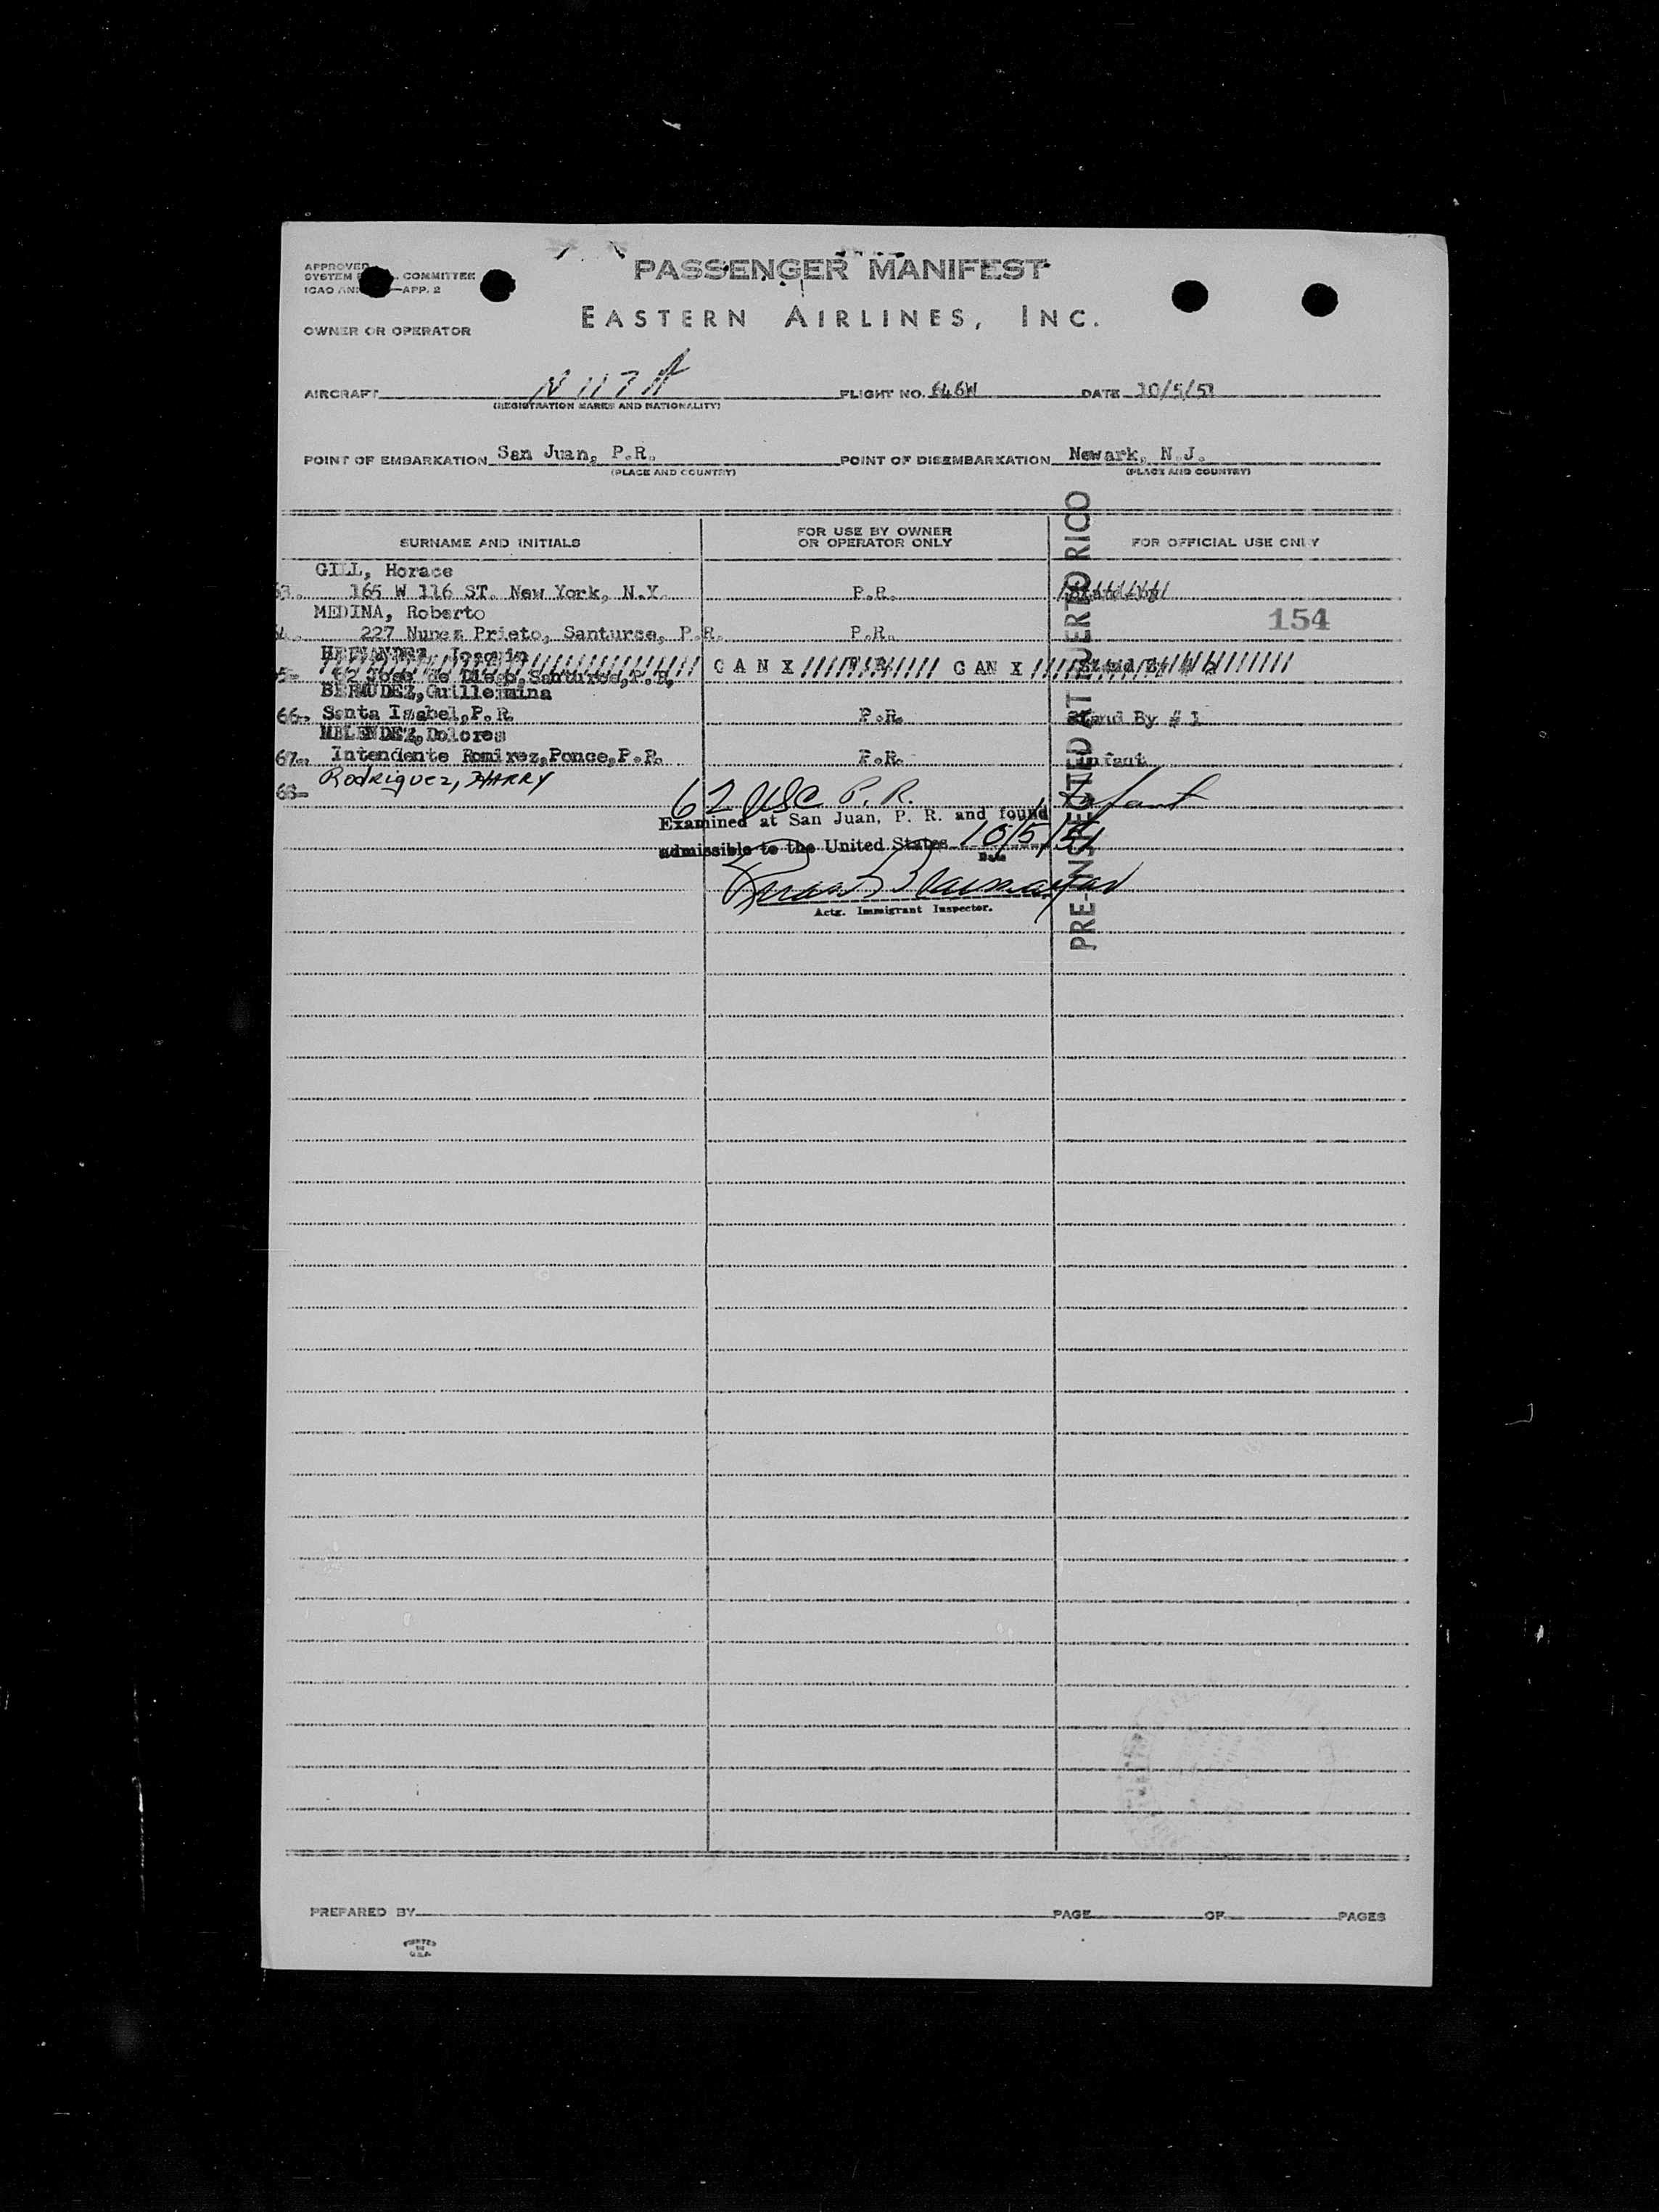 APPROVED
SYSTEM COMMITTEE
ICAO APP. 2
PASSENGER MANIFEST
EASTERN AIRLINES, INC.
OWNER OR OPERATOR
AIRCRAFT N 117 A FLIGHT NO. 646W DATE 10/5/51
(REGISTRATION MARKS AND NATIONALITY)
POINT OF EMBARKATION San Juan, P.R. POINT OF DISEMBARKATION Newark, N.J.
(PLACE AND COUNTRY) (PLACE AND COUNTRY)
SURNAME AND INITIALS FOR USE BY OWNER OR OPERATOR ONLY FOR OFFICIAL USE ONLY
GILL, Horace
165 W 116 ST. New York, N.Y. P.R.
MEDINA, Roberto 154
227 Nunez Prieto, Santurce, P.R. P.R.
HERNANDEZ, Joaquin
52 Jose de Diego, Santurce, P.R. CAN X P.R. CAN X Stand By
BERMUDEZ, Guillermina
66. Santa Isabel, P.R. P.R. Stand By # 1
MELENDEZ, Dolores
67. Intendente Romirez, Ponce, P.R. P.R. Infant
Rodriguez, HARRY
68- 62 USC P.R. Infant
Examined at San Juan, P. R. and found
admissible to the United States 10/5/51
Date
Actg. Immigrant Inspector.
PRE-INSPECTED AT PUERTO RICO
PREPARED BY PAGE OF PAGES
PRINTED
IN
U.S.A.